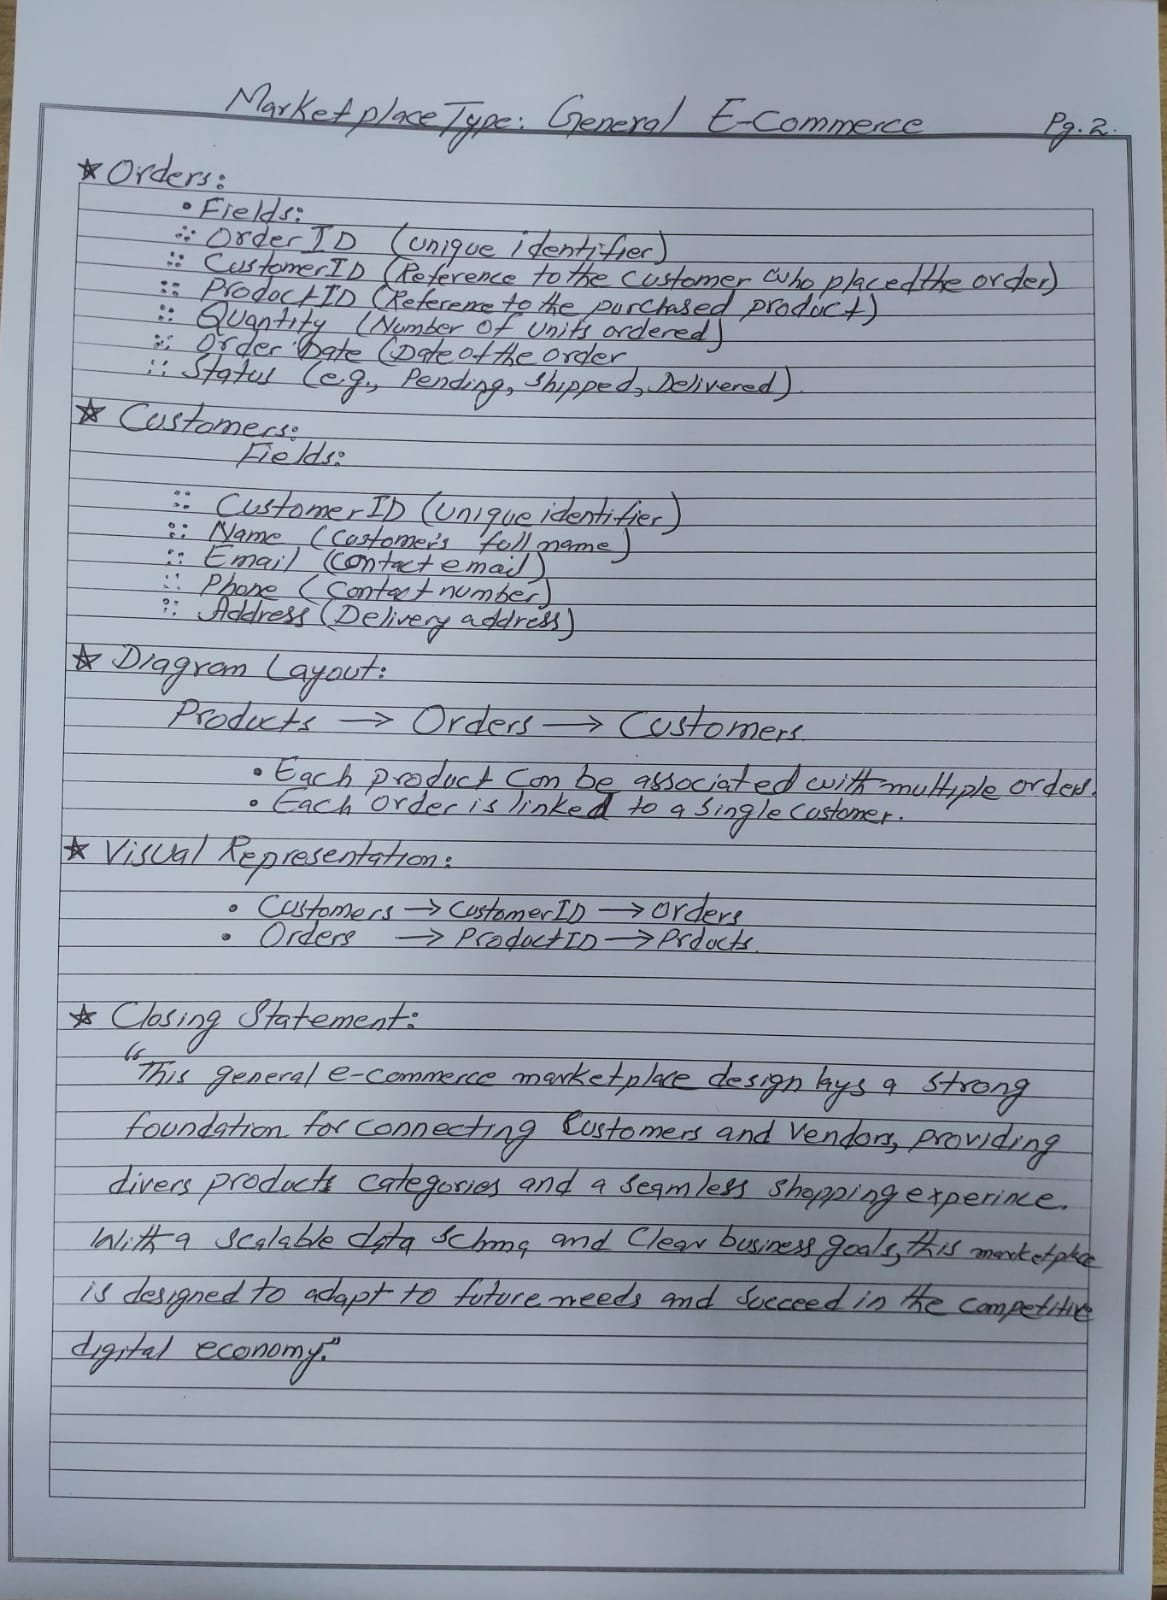 Marketplace Type: General E-Commerce Pg. 2.
★ Orders:
• Fields:
∴ Order ID (unique identifier)
:: CustomerID (Reference to the customer who placed the order)
:: ProductID (Refereme to the purchased product)
:: Quantity (Number of units ordered)
:: Order Date (Date of the order
:: Status (e.g., Pending, Shipped, Delivered).
★ Customers:
Fields:
:: CustomerID (unique identifier)
:: Name (Customer's full name)
:: Email (contact email)
:: Phone (Contact number)
:: Address (Delivery address)
★ Diagram Layout:
Products → Orders → Customers.
• Each product can be associated with multiple orders.
• Each order is linked to a single customer.
★ Visual Representation:
• Customers → CustomerID → Orders
• Orders → ProductID → Prducts.
★ Closing Statement:
"This general e-commerce marketplace design lays a strong
foundation for connecting Customers and Vendors, providing
divers products categories and a seamless shopping experince.
With a scalable data schma and Clear business goals, this marketplace
is designed to adapt to future needs and succeed in the competitive
digital economy."